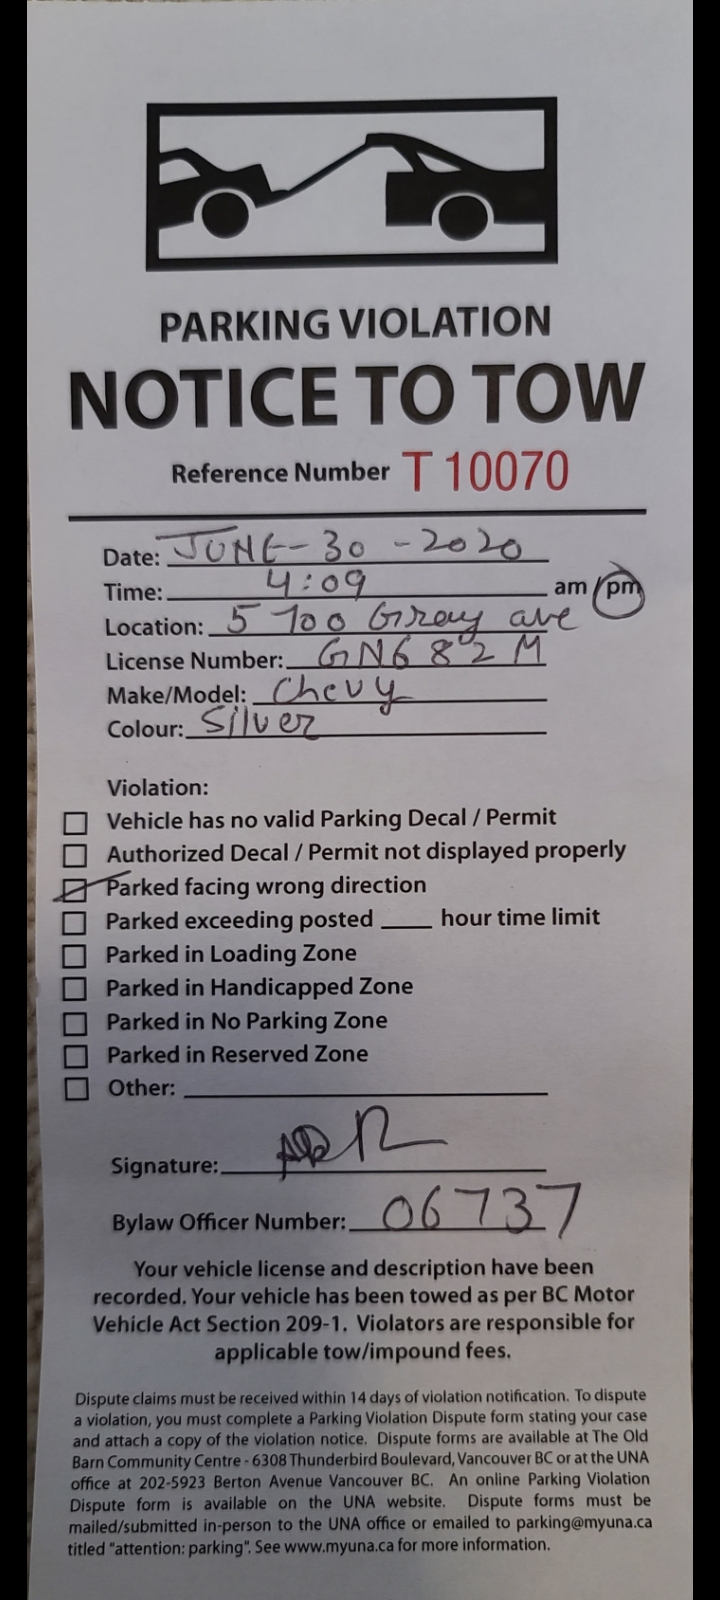 PARKING VIOLATION
NOTICE TO TOW
Reference Number T 10070
Date: JUNE-30-2020
Time: 4:09 am/pm
Location: 5700 Gray ave
License Number: GN682M
Make/Model: Chevy
Colour: Silver
Violation:
Vehicle has no valid Parking Decal / Permit
Authorized Decal / Permit not displayed properly
Parked facing wrong direction
Parked exceeding posted ____ hour time limit
Parked in Loading Zone
Parked in Handicapped Zone
Parked in No Parking Zone
Parked in Reserved Zone
Other:
Signature:
Bylaw Officer Number: 06737
Your vehicle license and description have been
recorded. Your vehicle has been towed as per BC Motor
Vehicle Act Section 209-1. Violators are responsible for
applicable tow/impound fees.
Dispute claims must be received within 14 days of violation notification. To dispute
a violation, you must complete a Parking Violation Dispute form stating your case
and attach a copy of the violation notice. Dispute forms are available at The Old
Barn Community Centre - 6308 Thunderbird Boulevard, Vancouver BC or at the UNA
office at 202-5923 Berton Avenue Vancouver BC. An online Parking Violation
Dispute form is available on the UNA website. Dispute forms must be
mailed/submitted in-person to the UNA office or emailed to parking@myuna.ca
titled "attention: parking". See www.myuna.ca for more information.